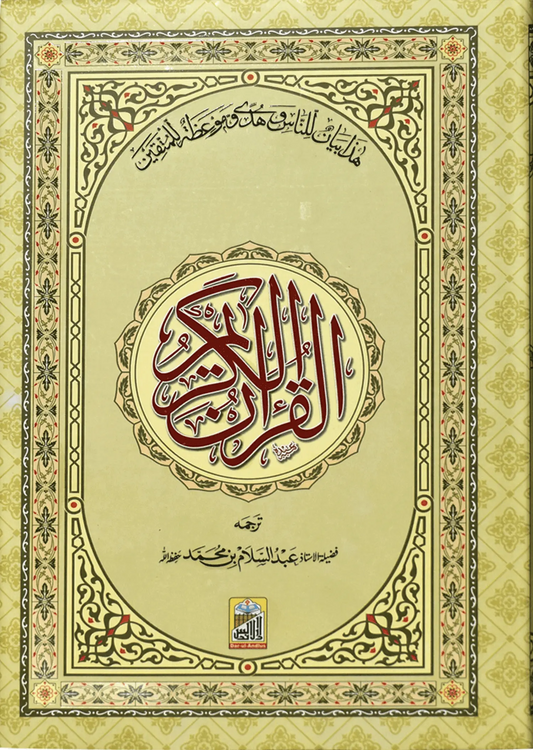 هذا بيان للناس وهدى وموعظة للمتقين
القرآن الكريم
ترجمہ
فضیلۃ الاستاذ عبدالسلام بن محمد حفظہ اللہ
دارالاندلس
Dar-ul-Andlus